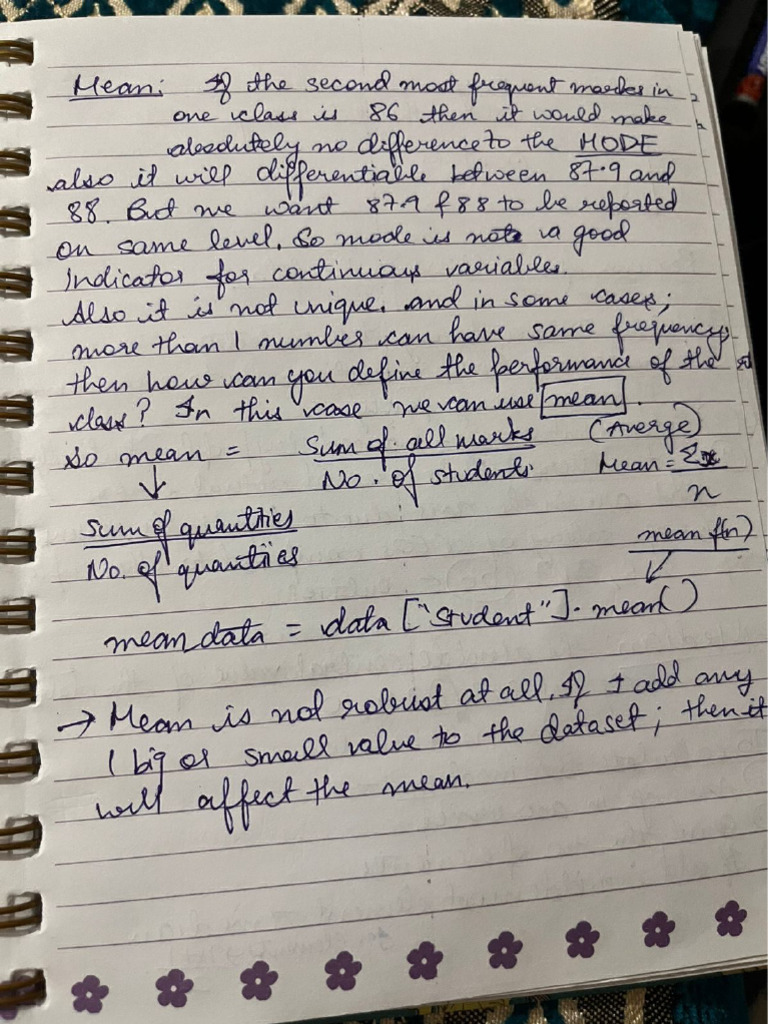 Mean: If the second most frequent marks in
one class is 86 then it would make
absolutely no difference to the MODE
also it will differentiable between 87.9 and
88. But we want 87.9 & 88 to be reported
on same level. So mode is not a good
indicator for continuous variables.
Also it is not unique. and in some cases;
more than 1 number can have same frequency
then how can you define the performance of the
class? In this case we can use mean.
So mean = Sum of all marks / No. of students
(Averge)
Mean = Σx / n
Sum of quantities
No. of quantiies
mean f(n)
mean_data = data ["student"]. mean()
→ Mean is not robust at all. If I add any
1 big or small value to the dataset; then it
will affect the mean.